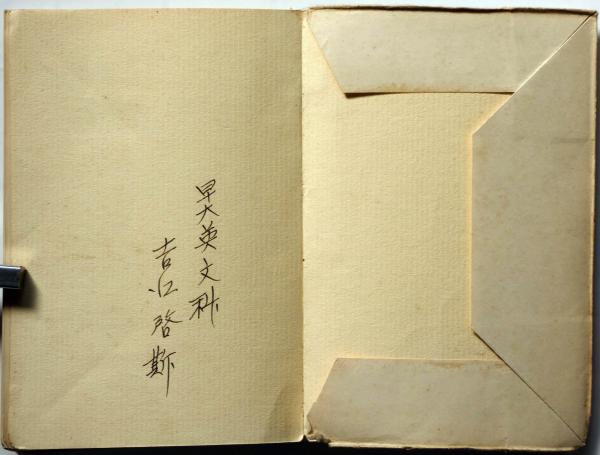 早大英文科
吉江啓斯